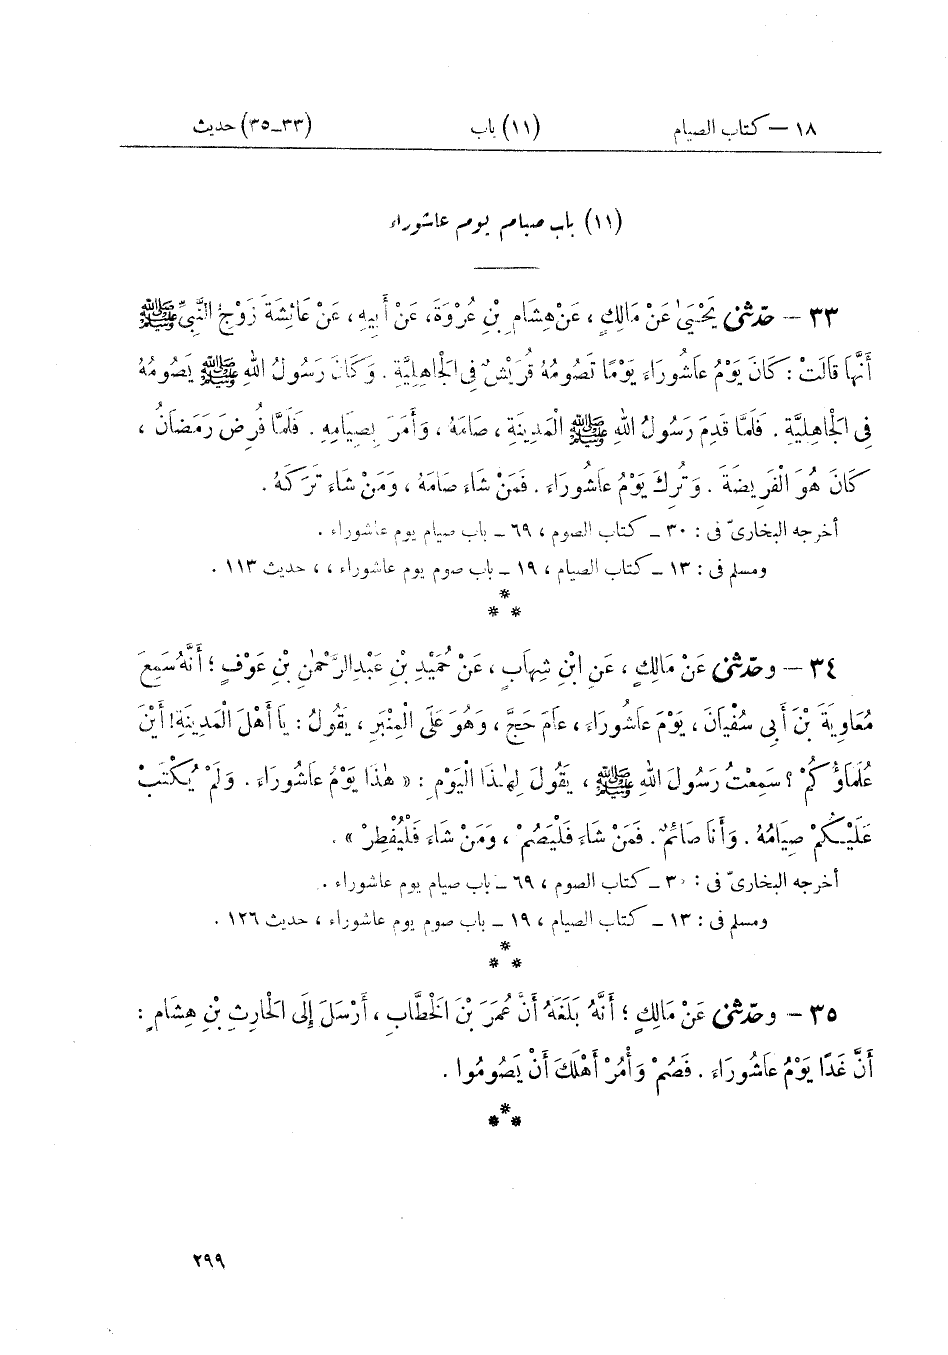 ١٨ – كتاب الصيام (١١) باب (٣٣-٣٥) حديث
(١١) باب صيام يوم عاشوراء
٣٣ – حدّثنى يَحْيَىٰ عَنْ مَالِكٍ ، عَنْ هِشَامِ بْنِ عُرْوَةَ، عَنْ أَبِيهِ ، عَنْ عَائِشَةَ زَوْجِ النَّبِيِّ ﷺ
أَنَّهَا قَالَتْ : كَانَ يَوْمُ عَاشُورَاءَ يَوْمًا تَصُومُهُ قُرَيْشٌ فِى الْجَاهِلِيَّةِ . وَكَانَ رَسُولُ اللهِ ﷺ يَصُومُهُ
فِى الْجَاهِلِيَّةِ . فَلَمَّا قَدِمَ رَسُولُ اللهِ ﷺ الْمَدِينَةِ ، صَامَهُ ، وَأَمَرَ بِصِيَامِهِ . فَلَمَّا فُرِضَ رَمَضَانُ ،
كَانَ هُوَ الْفَرِيضَةَ . وَتُرِكَ يَوْمُ عَاشُورَاءَ . فَمَنْ شَاءَ صَامَهُ ، وَمَنْ شَاءَ تَرَكَهُ .
أخرجه البخارىّ فى : ٣٠ ـ كتاب الصوم ، ٦٩ ـ باب صيام يوم عاشوراء .
ومسلم فى : ١٣ ـ كتاب الصيام ، ١٩ ـ باب صوم يوم عاشوراء ، ، حديث ١١٣ .
*
* *
٣٤ – وحدّثنى عَنْ مَالِكٍ ، عَنِ ابْنِ شِهَابٍ ، عَنْ حُمَيْدِ بْنِ عَبْدِالرَّحْمٰنِ بْنِ عَوْفٍ ؛ أَنَّهُ سَمِعَ
مُعَاوِيَةَ بْنَ أَبِى سُفْيَانَ ، يَوْمَ عَاشُورَاءَ ، عَامَ حَجَّ ، وَهُوَ عَلَى الْمِنْبَرِ ، يَقُولُ : يَا أَهْلَ الْمَدِينَةِ! أَيْنَ
عُلَمَاؤُكُمْ ؟ سَمِعْتُ رَسُولَ اللهِ ﷺ ، يَقُولَ لِهٰذَا الْيَوْمِ : « هٰذَا يَوْمُ عَاشُورَاءَ . وَلَمْ يُكْتَبْ
عَلَيْكُمْ صِيَامُهُ . وَأَنَا صَائِمٌ . فَمَنْ شَاءَ فَلْيَصُمْ ، وَمَنْ شَاءَ فَلْيُفْطِرْ » .
أخرجه البخارىّ فى : ٣٠ ـ كتاب الصوم ، ٦٩ ـ باب صيام يوم عاشوراء .
ومسلم فى : ١٣ ـ كتاب الصيام ، ١٩ ـ باب صوم يوم عاشوراء ، حديث ١٢٦ .
*
* *
٣٥ – وحدّثنى عَنْ مَالِكٍ ؛ أَنَّهُ بَلَغَهُ أَنَّ عُمَرَ بْنَ الْخَطَّابِ ، أَرْسَلَ إِلَى الْحَارِثِ بْنِ هِشَامٍ :
أَنَّ غَدًا يَوْمُ عَاشُورَاءَ . فَصُمْ وَأْمُرْ أَهْلَكَ أَنْ يَصُومُوا .
*
* *
٢٩٩